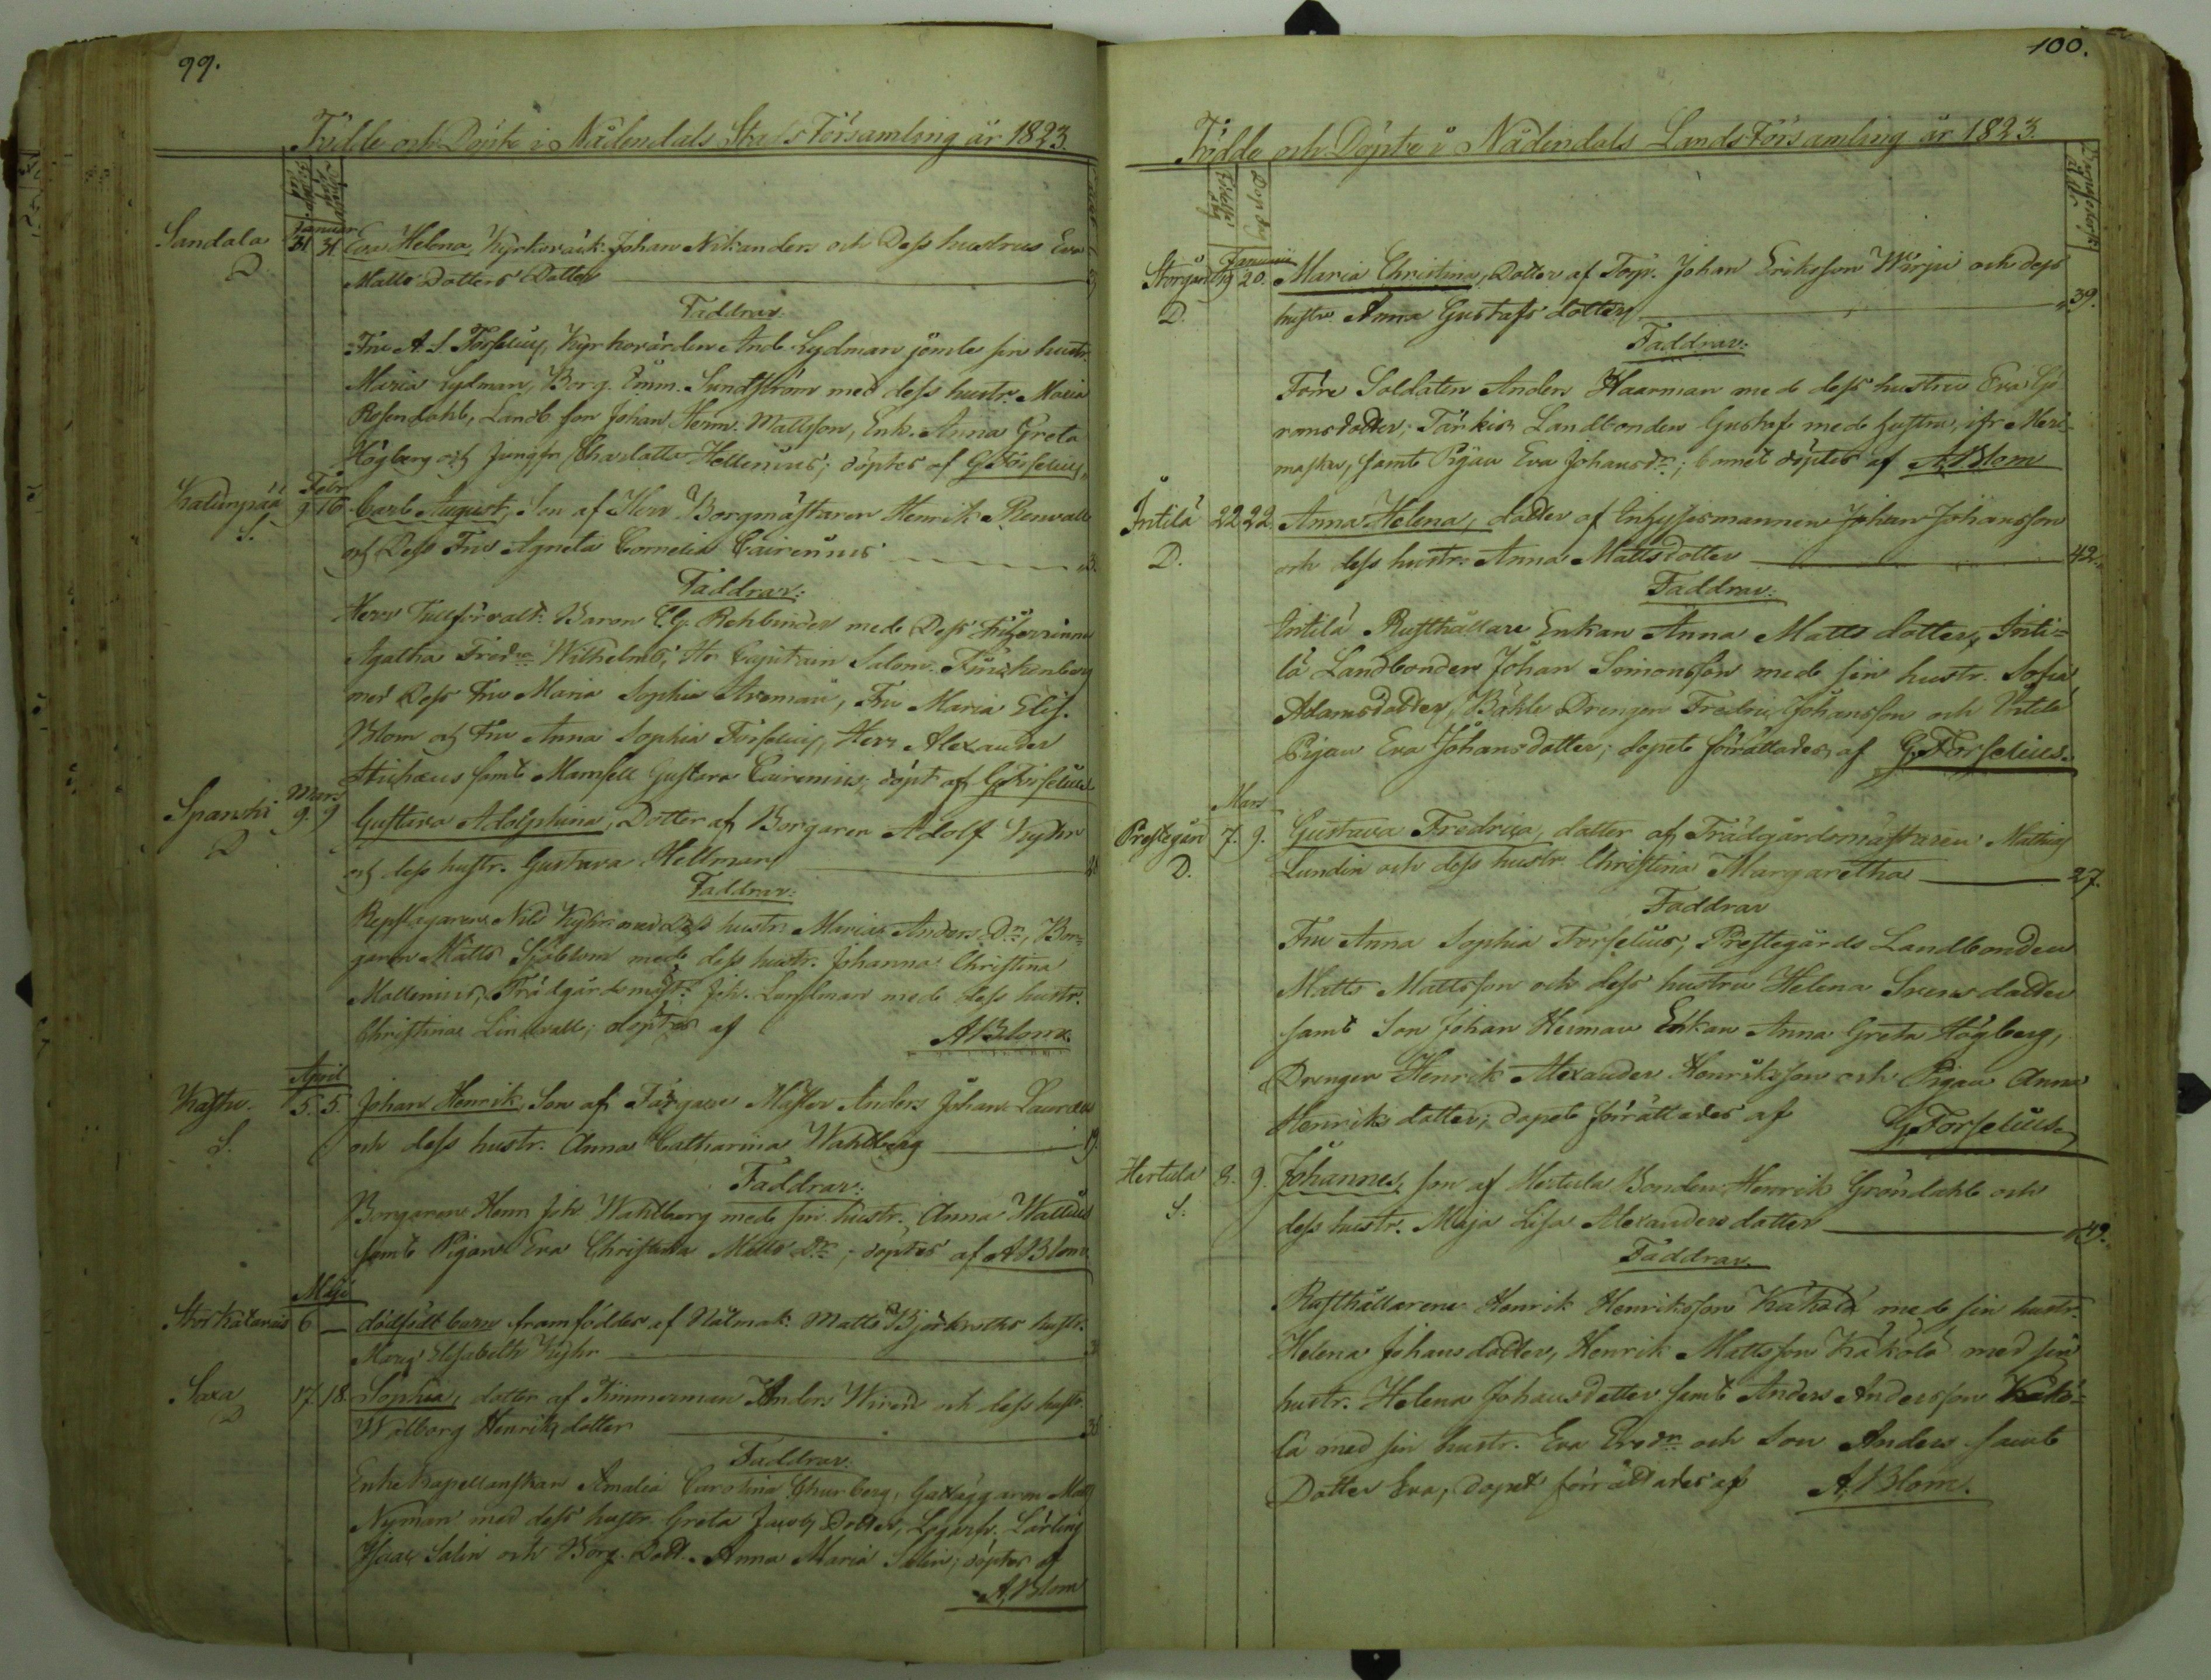 99.
Födde och Döpte i Nådendals Stads Församling år 1823.
Januari
Sandala 31 31 Eva Helena, Johan Nikander och Dess hustrus Eva
D. Matts Dotters Dotter
Faddrar:
Fru A. S. Forselius, Kyrkovärden And. Lydman jemte sin hustr.
Maria Lydman, Borg. Emm. Sundström med dess hustr. Maria
Rosendahl, Landb. son Johan Herm. Mattsson, Enk. Anna Greta
Högberg och Jungfr. Charlotta Hellenius; döptes af G. Forselius
Febr.
9 16 Carl August, Son af Herr Borgmästaren Henrik Renvall
S. och Dess Fru Agneta Cornelia Cairenius
Faddrar:
Herr Tullförvalt. Baron C. G. Rehbinder med Dess Friherrinna
Agatha Wilhelm, Hr Capitain Salom.
med Dess Fru Maria Sophia, Fru Maria Elis.
Blom och Fru Anna Sophia Forselius, Herr Alexander
samt Mamsell Gustava Cairenius, döpt af G. Forselius
Mars
Spanski 9. 9 Gustava Adolphina, Dotter af Borgaren Adolf Kyhr
D och dess hustr. Gustava Hellman
Faddrar:
Repslagaren Nils Kyhr med Dess hustr. Maria Anders Dr., Bor-
garen Matts Sjöblom med dess hustr. Johanna Christina
Mollenius, Trädgårdsmäst. Joh. med dess hustr.
Christina; döptes af A Blom.
April
5. 5. Johan Henrik, Son af Färgare Mäster Anders Johan
S. och dess hustr. Anna Catharina Wahlberg 19.
Faddrar:
Borgaren Henr. Joh. Wahlberg med sin hustr. Anna
samt Pigan Eva Christina Matts Dr; döptes af A Blom
Maji
6 — dödfödt barn framföddes af Matts Björkroths hustr.
Marg. Elisabeth Kyhr
Saxa 17. 18. Sophia, dotter af Timmerman Anders Wirén och dess hustr.
D Walborg Henriks dotter
Faddrar:
Enke Kapellanskan Amalia Carolina Churberg,
Nyman med dess hustr. Greta Jacobs Dotter, Lärling
Isaac Salin och Borg. Dott. Anna Maria Salin; döptes af
A. Blom
100.
Födde och Döpte i Nådendals Lands Församling år 1823.
Födelse dag
Dop dag
Januarii
Storgård 19 20. Maria Christina, Dotter af Torp. Johan Eriksson Wirju och dess
D. hustr. Anna Gustafs dotter 39.
Faddrar:
Förre Soldaten Anders Haarman med dess hustru Eva
ramsdotter, Tärkis Landbonden Gustaf med hustru,
masku, samt Pigan Eva Johansdr.; barnet döptes af A. Blom
Intilä 22 22. Anna Helena, dotter af Inhysesmannen Johan Johansson
D. och dess hustr. Anna Mattsdotter 42.
Faddrar:
Intilä Rusthållare Enkan Anna Matts dotter, Inti-
lä Landbonden Johan Simonsson med sin hustr. Sofia
Adamsdotter, Drengen Fredric Johansson och Intilä
Pigan Eva Johansdotter; dopet förrättades af G. Forselius.
Mars
Prestegår 7. 9. Gustava Fredrica, dotter af Trädgårdsmästaren Mathias
D. Lundin och dess hustr. Christina Margaretha 27.
Faddrar
Fru Anna Sophia Forselius, Prestegårds Landbonden
Matts Mattsson och dess hustru Helena Svens dotter
samt Son Johan Herman Enkan Anna Greta Högberg,
Drengen Henrik Alexander Henriksson och Pigan Anna
Henriks dotter; dopet förrättades af G. Forselius
Hertula 8. 9. Johannes, son af Hertula Bonden Henrik Gröndahl och
S. dess hustr. Maja Lisa Alexanders dotter 49.
Faddrar
Rusthållaren Henrik Henriksson Kakola med sin hustr.
Helena Johansdotter, Henrik Mattsson Kakola med sin
hustr. Helena Johansdotter samt Anders Andersson Kako-
la med sin hustr. Eva och Son Anders samt
Dotter Eva, dopet förrättades af A. Blom.